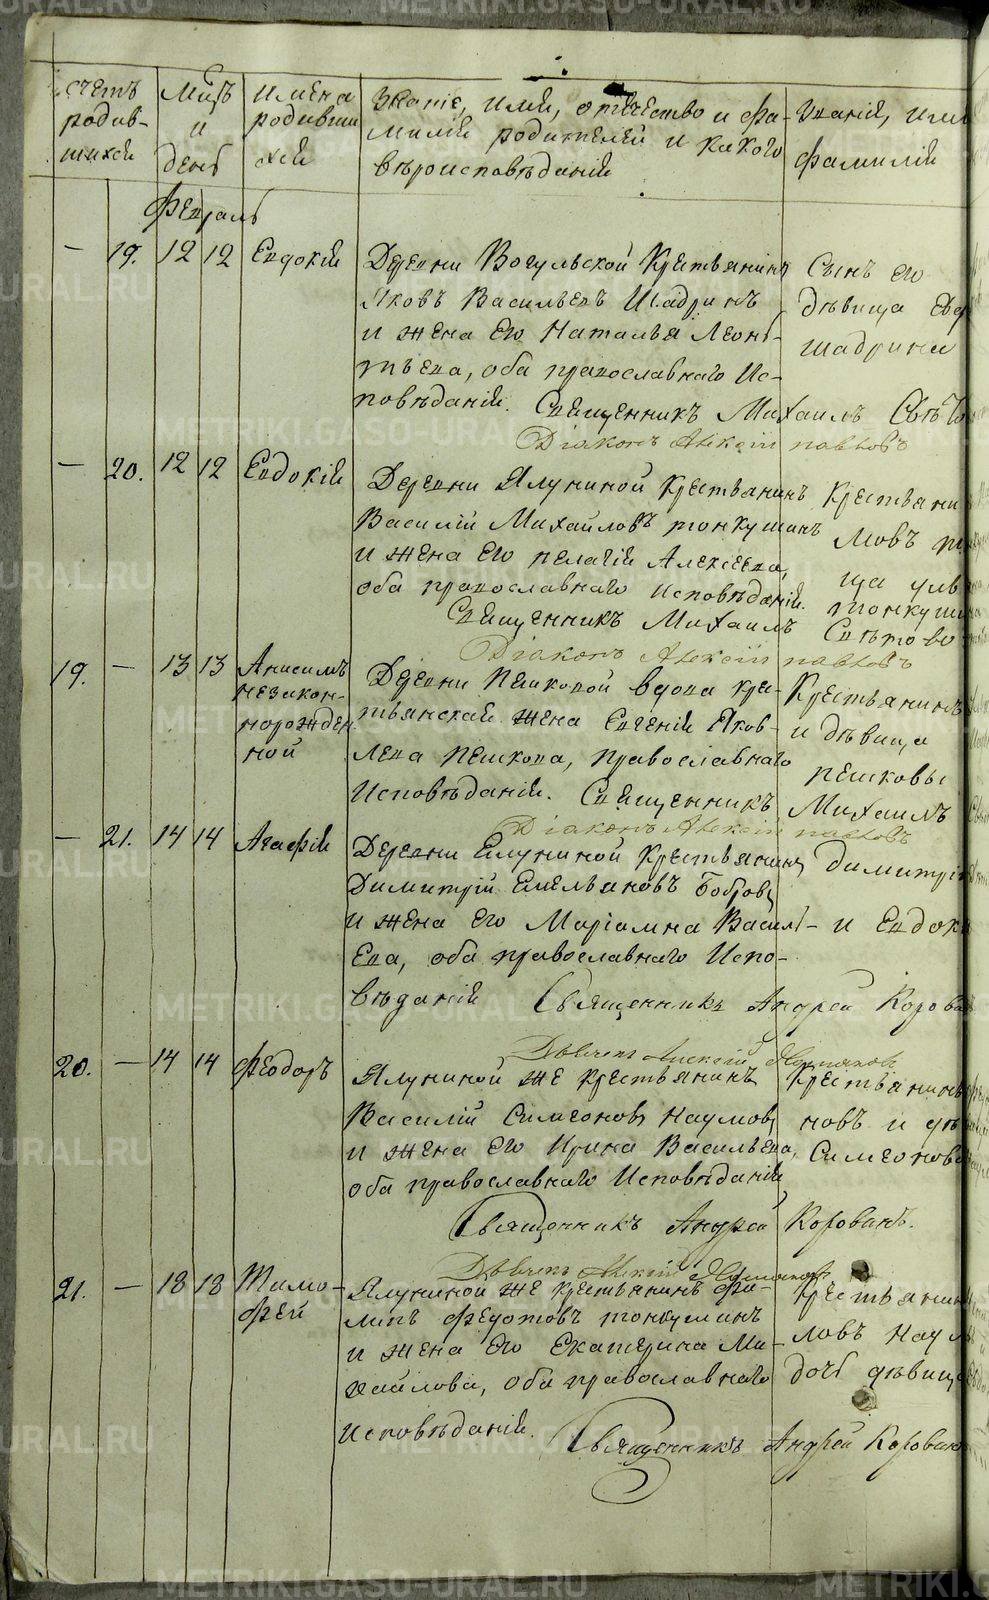 счетъ родив-шихся
Мцъ и день
имена родивши хся
Званіе, имя, отчество и фа-
милія родителей и какого
вѣроисповѣданія
Званій, имя
фамилій
Февраль
— 19. 12 12 Евдокія
Деревни Вогульской Крестьянинъ
Яковъ Васильевъ Шадринъ
и жена его Наталья Леонь-
тьева, оба православнаго Ис-
повѣданія. Священникъ Михаилъ
Сынъ его
дѣвица
шадрина
Діаконъ Алексій Павловъ
— 20. 12 12 Евдокія
Деревни Ялуниной Крестьянинъ
Василій Михайловъ тонкушинъ
и жена его пелагія Алексеева,
оба православнаго исповѣданія.
Священникъ Михаилъ
Крестьяни
ловъ
ца
тонкуши
Свѣтово
Діаконъ Алексій Павловъ
19. — 13 13 Анисимъ
незакон-
норожден
ной
Деревни Пешковой вдова кре-
стьянская жена Евгенія Яков-
лева Пешкова, Православнаго
Исповѣданія. Священникъ Михаилъ
Крестьянинъ
и дѣвица
пешковы
Діаконъ Алексій Павловъ
— 21. 14 14 Агафія
Деревни Ялуниной Крестьянинъ
Димитрій Емельяновъ Бобровъ
и жена его Маріамна Василь-
ева, оба православнаго Испо-
вѣданія Священникъ Андрей Корова
Димитрі
и Евдок
20. — 14 14 Феодоръ
Ялуниной же крестьянинъ
Василій Симеоновъ Наумовъ
и жена его Ирина Васильева,
оба православнаго Исповѣданія
Священникъ Андрей Короваевъ.
Крестьянинъ
новъ и дѣ
Симеонова
21. — 18 18 Тимо-
фей
Ялуниной же крестьянинъ Фи-
липъ Федотовъ тонкушинъ
и жена его Екатерина Ми-
хайлова, оба православнаго
Исповѣданія. Священникъ Андрей
Крестьянин
ловъ Наум
дочь дѣвиц
METRIKI.GASO-URAL.RU